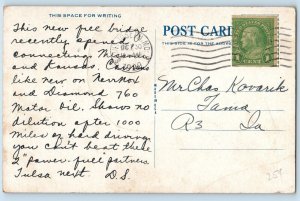 THIS SPACE FOR WRITING
POST CARD
THIS SIDE IS FOR THE ADDRESS
This new free bridge
recently opened
connecting Miami
and Kansas. Car runs
like new on NevNox
and Diamond 760
Motor Oil. Shows no
dilution after 1000
miles of hard driving
you can't beat these
2 "power-full" partners
Tulsa next D.S.
1 CENT 1
Mr Chas Kovarik
Tama
R3 Ia
25¢